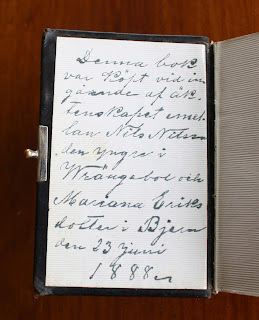 Denna bok
var köpt vid in
gående af äk-
tenskapet emel
lan Nils Nilsson
den yngre i
Wrångebol och
Mariana Eriks
dotter i Bjern
den 23 juni
1888